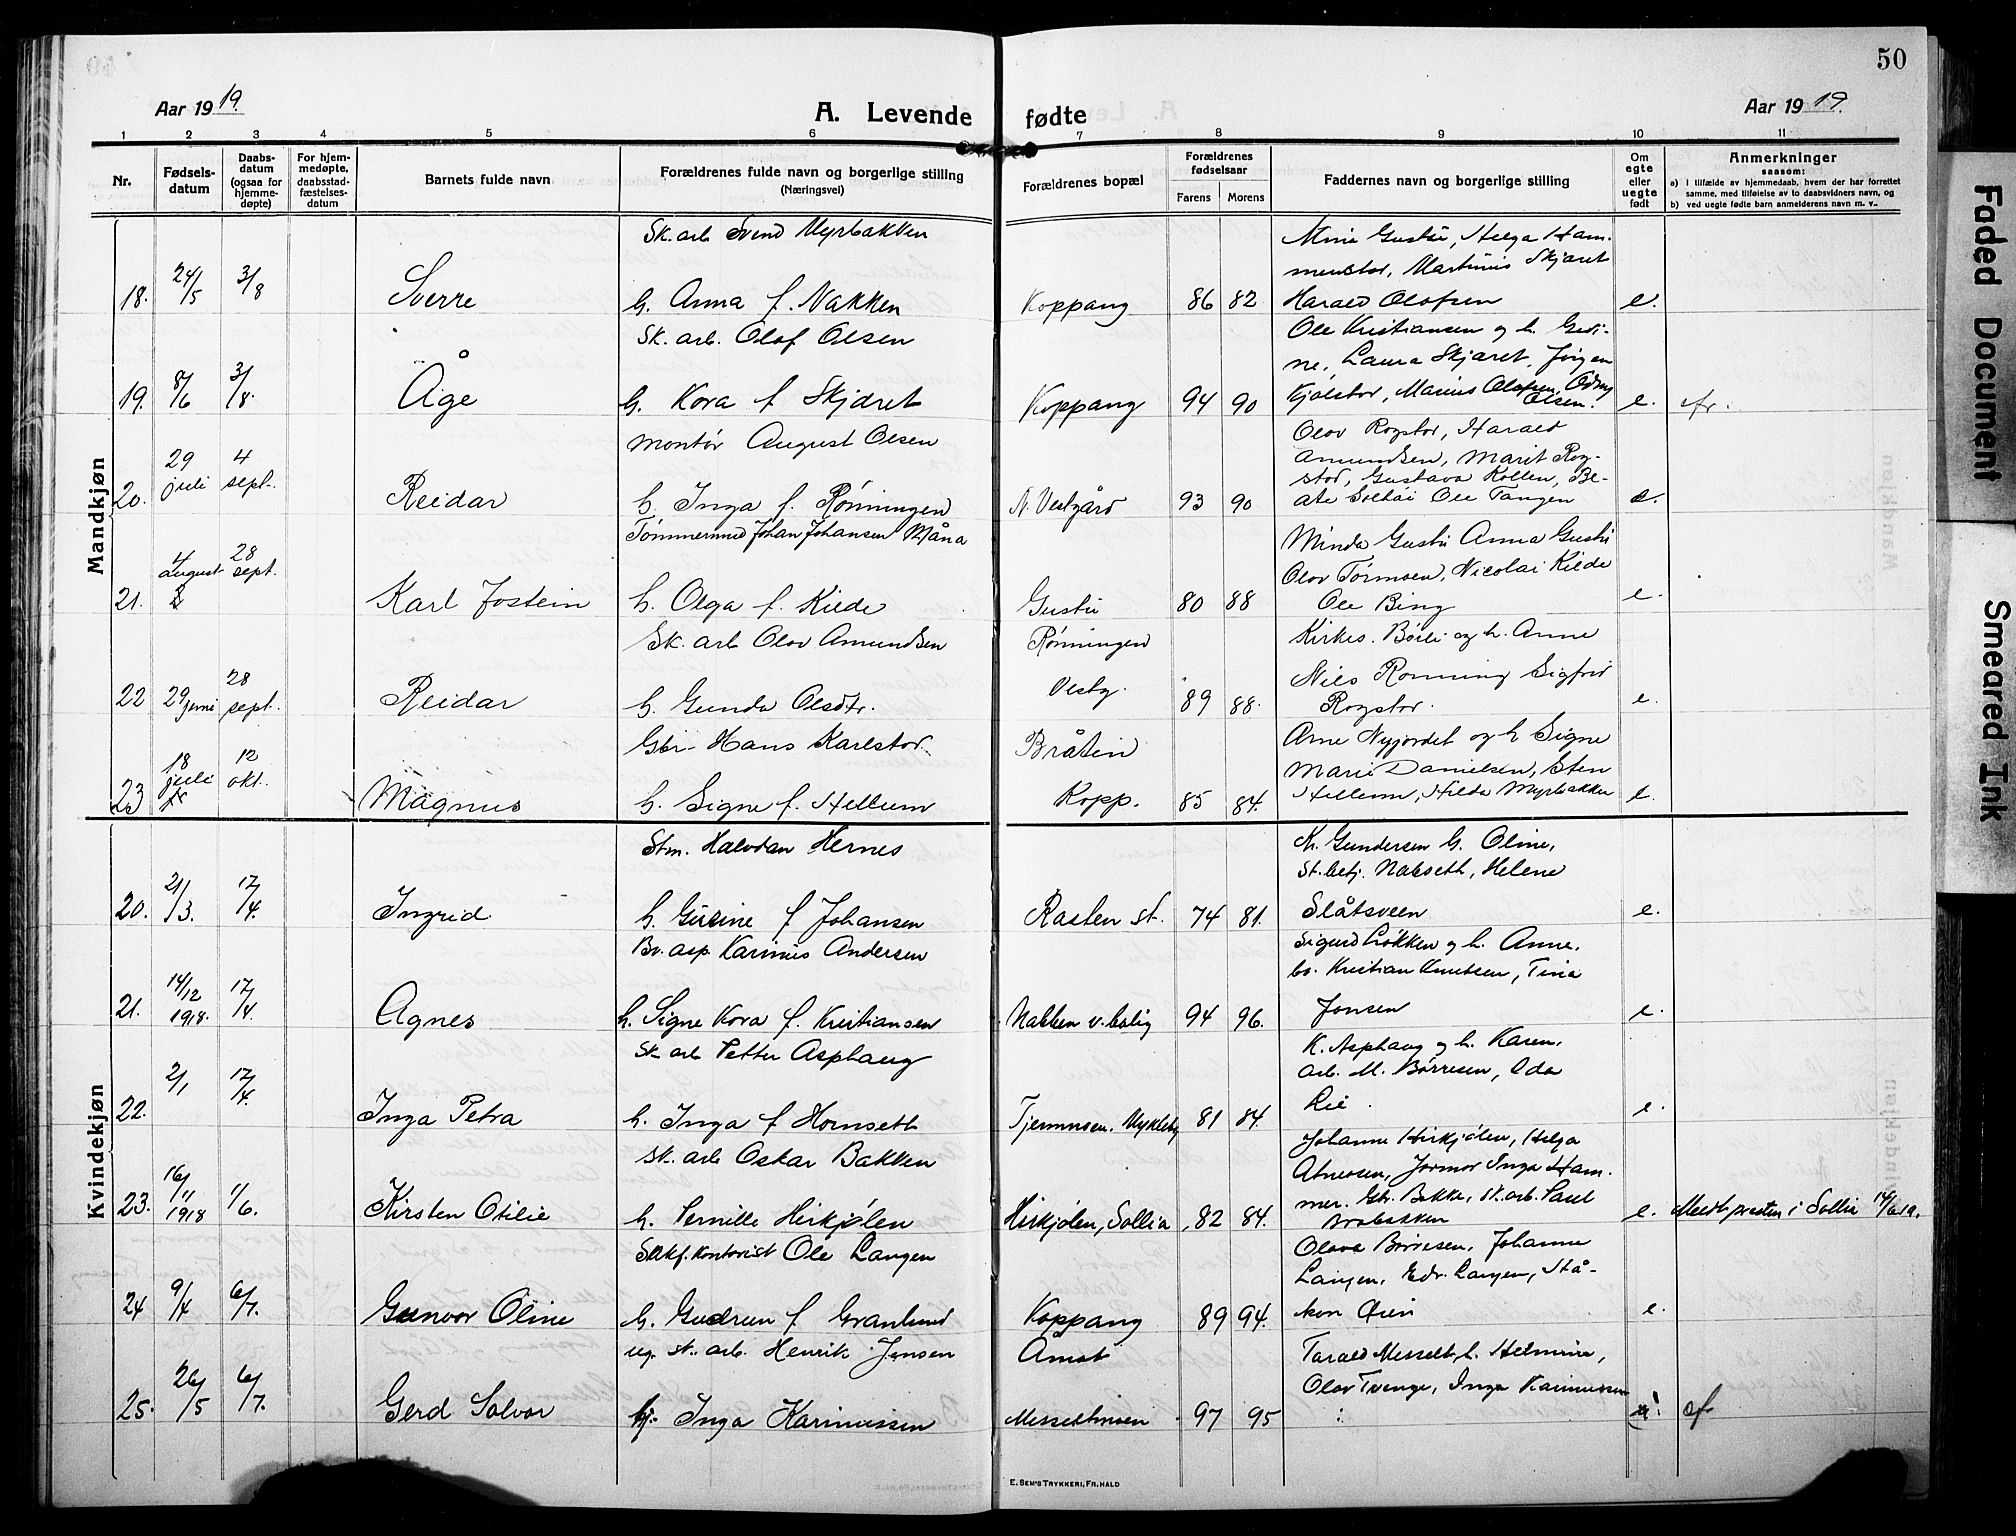 50
Aar 1919.
A. Levende fødte
Aar 1919.
1 2 3 4 5 6 7 8 9 10 11
Nr.
Fødsels-
datum
Daabs-
datum
(ogsaa for
hjemme-
døpte)
For hjem-
medøpte,
daabsstad-
fæstelses-
datum
Barnets fulde navn
Forældrenes fulde navn og borgerlige stilling
(Næringsvei)
Forældrenes bopæl
Forældrenes
fødselsaar
Farens Morens
Faddernes navn og borgerlige stilling
Om
egte
eller
uegte
født
Anmerkninger
saasom:
a) I tilfælde av hjemmedaab, hvem der har forrettet
samme, med tilføielse av to daabsvidners navn, og
b) ved uegte fødte barn anmelderens navn m. v..
Mandkjøn
Sk. arb Svend Myrbakken
18. 24/5 3/8 Sverre h. Anna f. Nakken Koppang 86 82 e.
Mina Gustu, Helga Ham-
menstor, Martinus Skjæret
Harald Olofsen
Sk. arb. Olof Olsen
19. 8/6 3/8. Åge h. Kora f Skjæret Koppang 94 90 e.
Ole Kristiansen og h.
ne, Laura Skjæret, Jørgen
Kjølstor, Marius Olofsen, Odny
Olsen.
Montør August Olsen
20. 29 juli 4 sept. Reidar h. Inga f. Rønningen N. Vestgård 93 90 e.
Olov Rogstor, Harald
Amundsen, Marit Rog-
stor, Gustava Kollen, Be-
ate Ole Tangen
Tømmermnd Johan Johansen Måna
21. 4 august 28 sept. Karl Jostein h. Olga f. Kilde Gustu 80 88 e.
Minda Gustu Anna Gustu
Olov Tørmoen, Nicolai Kilde
Ole Bing
Sk. arb Olov Amundsen
22 29 juni 28 sept. Reidar h. Gunda Olsdtr. Rønningen Vestg. 89 88. e.
Kirkes. Børli og h. Anne
Nils Rønning Sigfrid
Rogstor.
Gbr. Hans Karlstor
23 18 juli 12 okt. Magnus h. Signe f. Hellum Bråten Kopp. 85 84. e.
Arne Nyjordet og h Signe
Marie Danielsen, Sten
Hellum, Hilda Myrbakken
Kvindekjøn
Stm. Halvdan Hernes
20. 21/3. 17/4. Ingrid h. Gusine f Johansen Rasten st. 74 81. e.
Kr. Gundersen h. Oline,
St. betj. Nabseth, Helene
Slåtsveen
Bv. asp. Karinus Andersen
21. 14/12 1918. 17/4. Agnes h. Signe Kora f. Kristiansen Nabben v. bolig 94 96. e.
Sigurd Løkken og h. Anne,
bv. Kristian Knutsen, Tina
Jonsen
Sk arb Petter Asphaug
22. 2/1 17/4. Inga Petra h. Inga f Hornseth Tjernmoen. Mykleby 81 84. e.
K. Asphaug og h. Karen,
arb. M. Børresen, Oda
Lie.
Sk. arb Oskar Bakken
23. 16/11 1918 1/6. Kirsten Otilie h. Pernille Hirkjølen Hirkjølen, Sollia 82 84. e. Meddt presten i Sollia 14/6 19.
Johanne Hirkjølen, Helga
Atneosen, Jormor Inga Ham-
mer. Gbr. Bakke, sk. arb. Paul
Brobakken
Skkf. kontorist Ole Langen
24 9/4 6/7. Gunvor Oline h. Gudrun f Granlund Koppang 89 94. e.
Olava Børresen, Johanne
Langen, Edv. Langen, Hå-
kon Øien
ug. sk. arb. Henrik Jensen
25. 26/5 6/7. Gerd Solvor Inga Karinussen Åmot Messeltmoen 97 95 cf.
Tarald Messelt, h. Helmine,
Olov Tvenge, Inga Karinussen
E. Sem's Trykkeri, Fr.hald
Faded Document
Smeared Ink